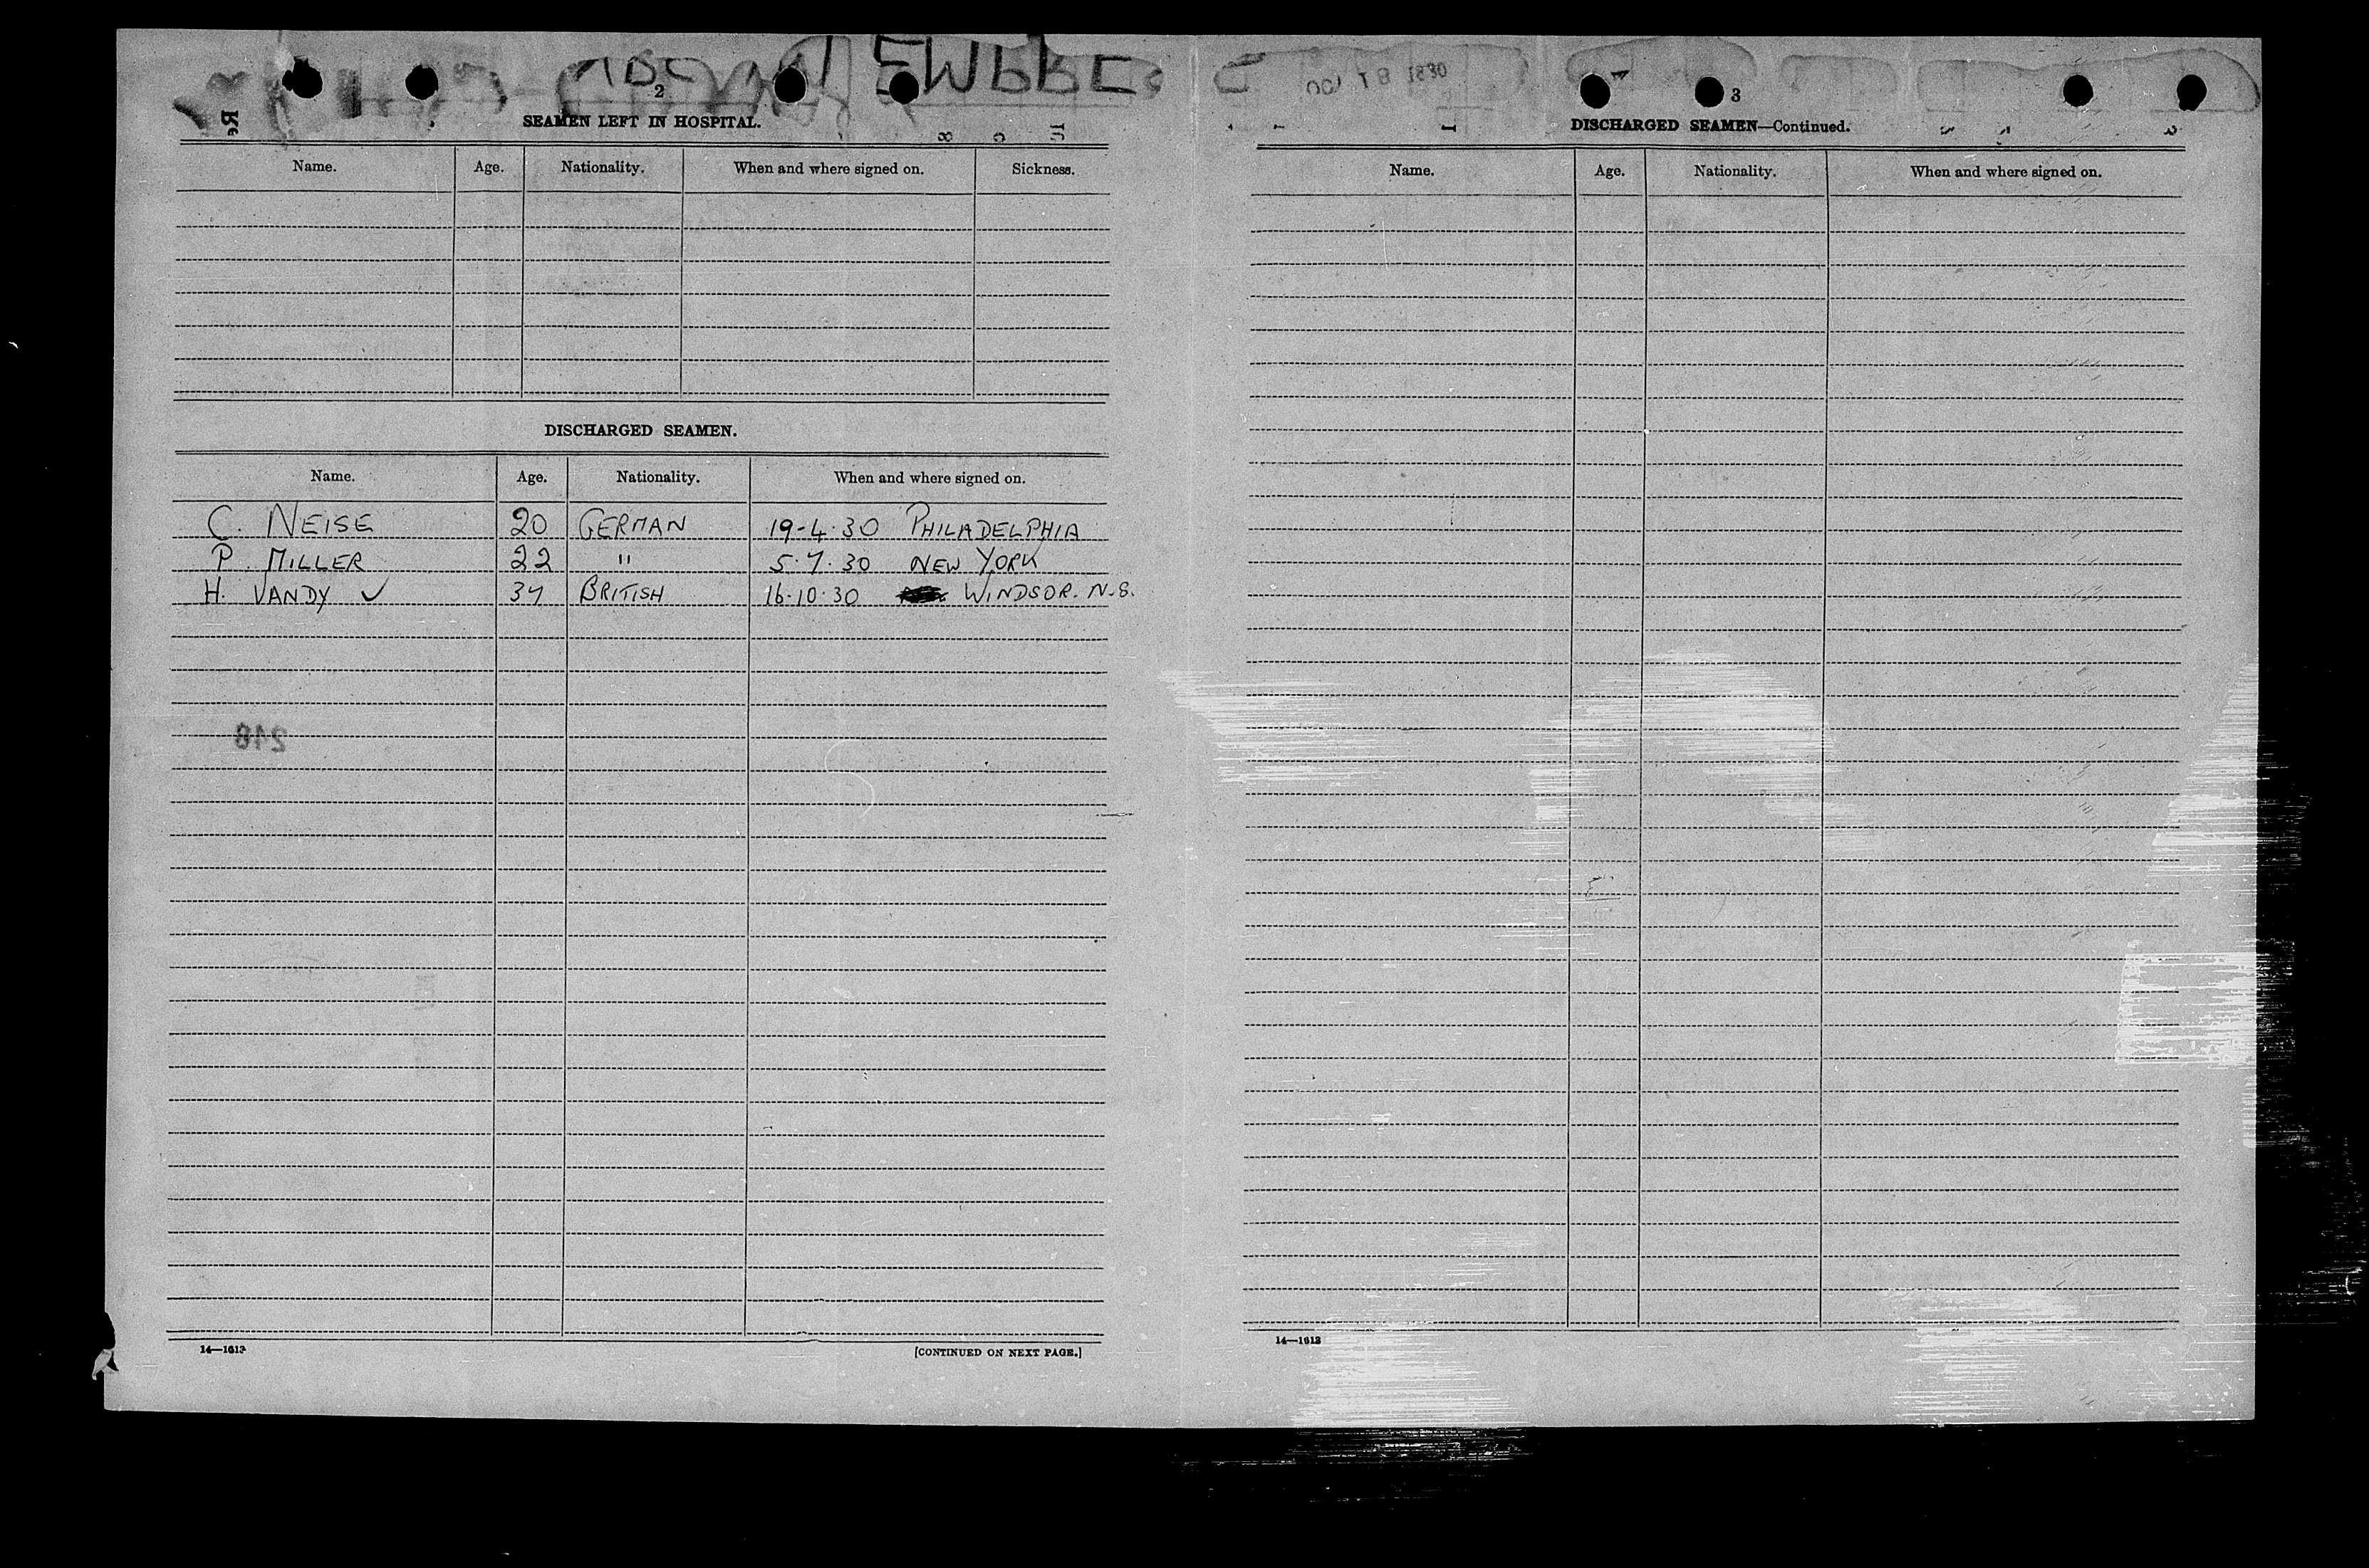 2
SEAMEN LEFT IN HOSPITAL.
Name. Age. Nationality. When and where signed on. Sickness.
DISCHARGED SEAMEN.
Name. Age. Nationality. When and where signed on.
C. NEISE 20 GERMAN 19-4-30 PHILADELPHIA
P. MILLER 22 " 5.7.30 NEW YORK
H. VANDY ✓ 37 BRITISH 16-10-30 WINDSOR. N.S.
248
14—1613
[CONTINUED ON NEXT PAGE.]
3
DISCHARGED SEAMEN—Continued.
Name. Age. Nationality. When and where signed on.
14—1613